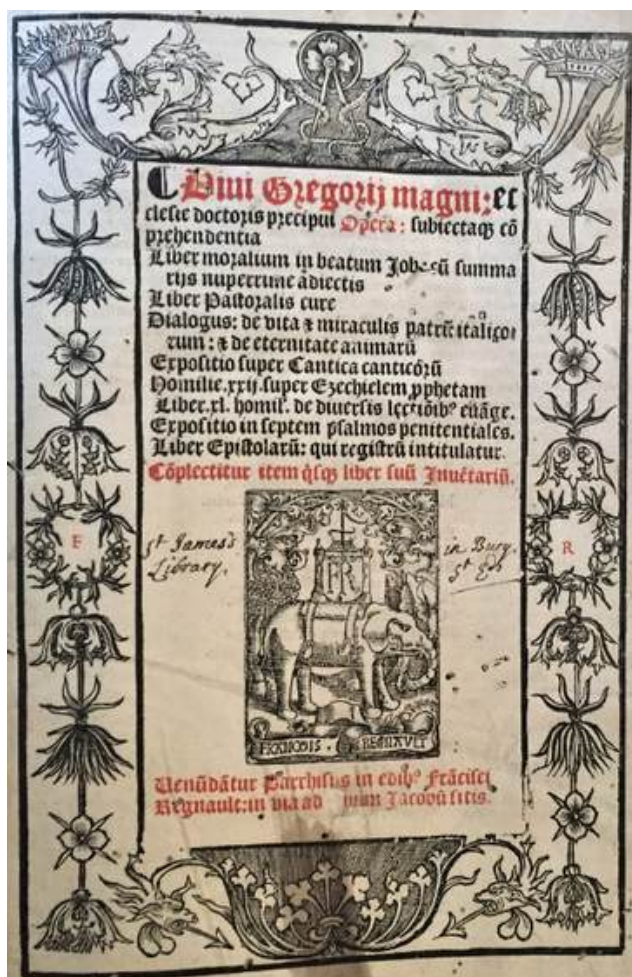 Diui Gregorij magni: ec
clesie doctoris precipui Opera: subiectaqꝫ cō
prehendentia
Liber moralium in beatum Job: cū summa
rijs nuperrime adiectis
Liber Pastoralis cure
Dialogus: de vita ⁊ miraculis patrū italico
rum: ⁊ de eternitate animarū
Expositio super Cantica canticorū
Homilie .xxij. super Ezechielem ꝓphetam
Liber .xl. homil'. de diuersis lectiōibꝰ euāge.
Expositio in septem psalmos penitentiales.
Liber Epistolarū: qui registrū intitulatur.
Cōplectitur item q̇sqꝫ liber suū Inuētariū.
F
R
FR
St James's
Library.
in Bury.
St Ed
FRANCOIS · REGNAULT
Uenūdātur Parrhisijs in edibꝰ Frācisci
Regnault: in via ad Jacobū sitis.